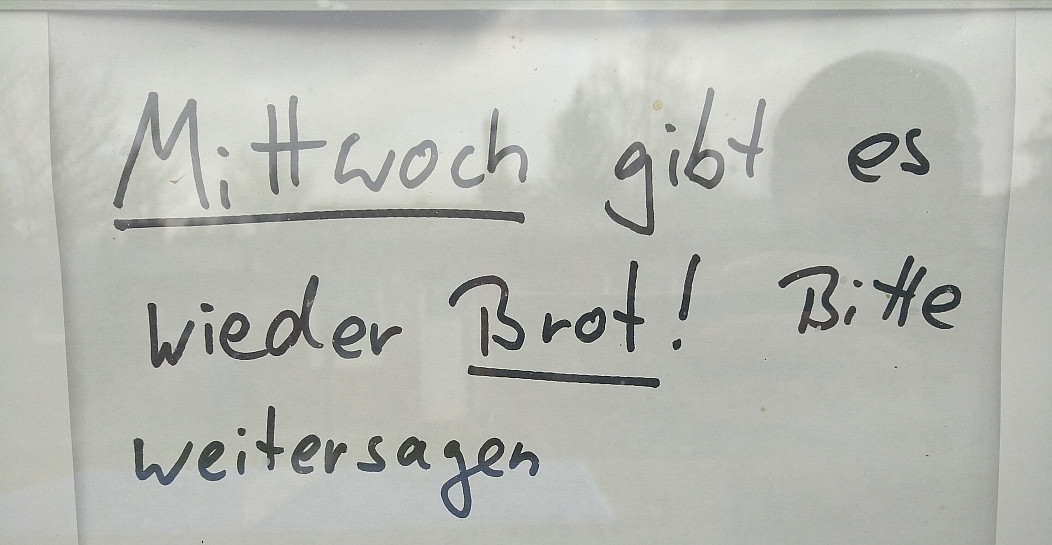 Mittwoch gibt es
wieder Brot! Bitte
weitersagen